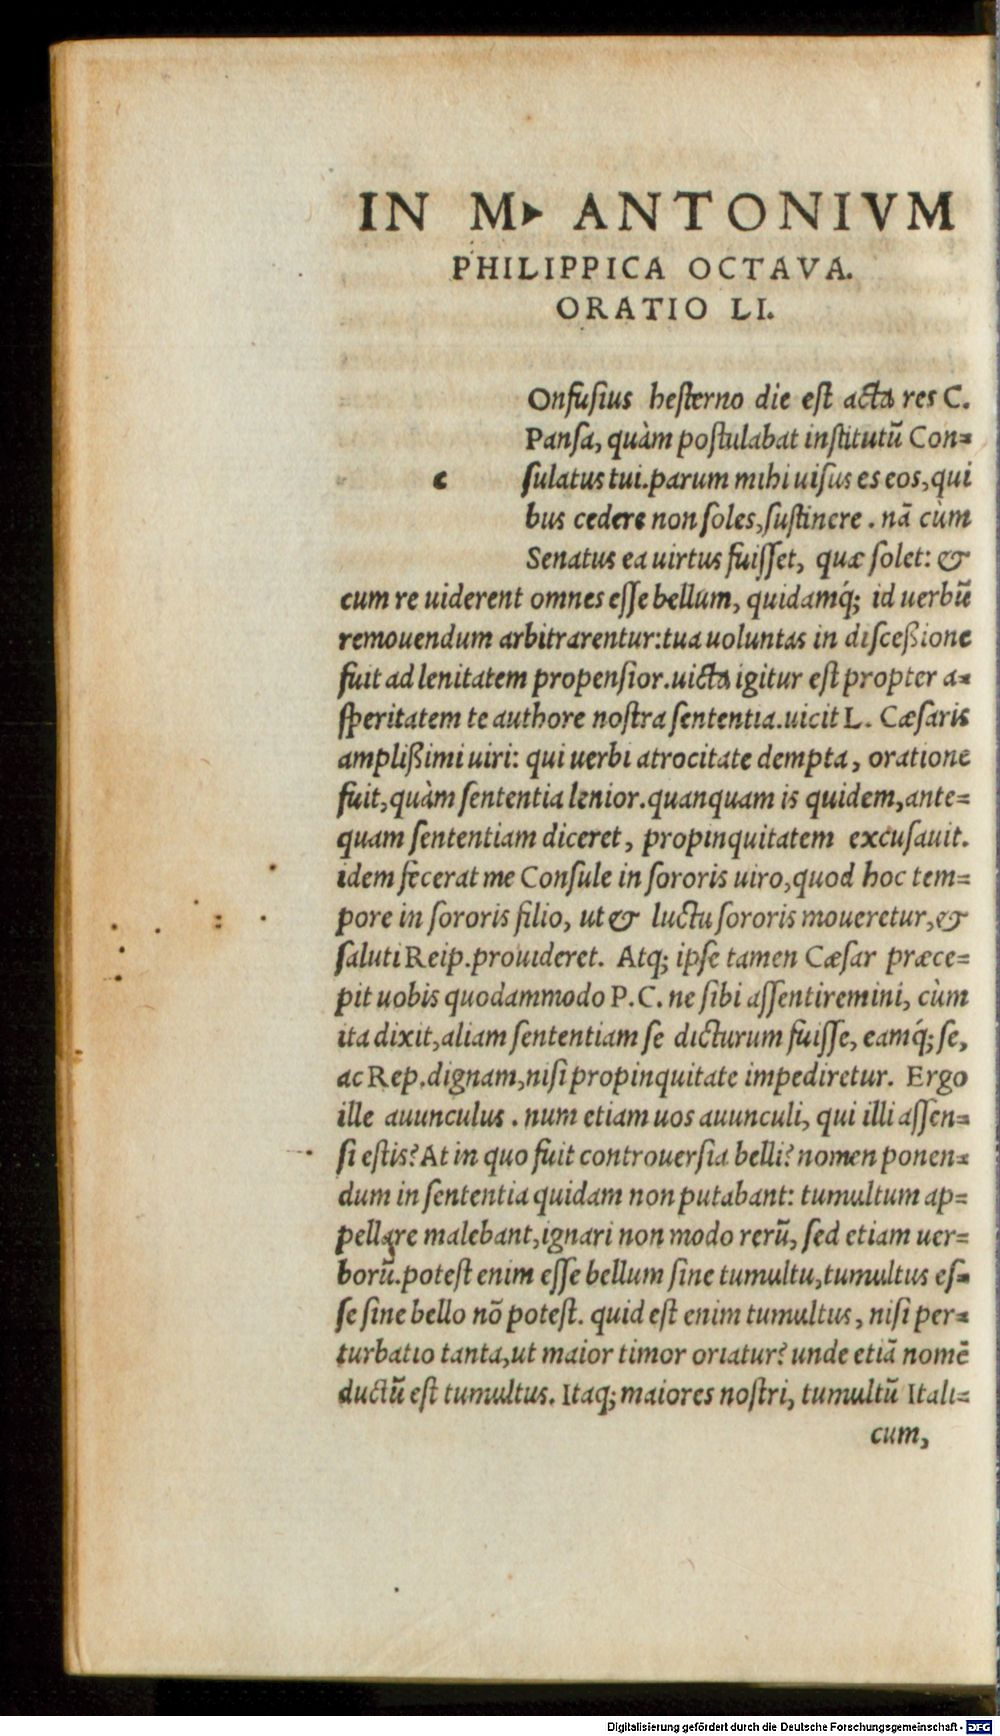 IN M▸ ANTONIVM
PHILIPPICA OCTAVA.
ORATIO LI.
Onfuſius heſterno die eſt acta res C.
Panſa, quàm poſtulabat inſtitutū Con=
c ſulatus tui.parum mihi uiſus es eos,qui
bus cedere non ſoles,ſuſtinere . nā cùm
Senatus ea uirtus fuiſſet, quæ ſolet: &
cum re uiderent omnes eſſe bellum, quidamq́; id uerbū
remouendum arbitrarentur:tua uoluntas in diſceßione
fuit ad lenitatem propenſior.uicta igitur eſt propter a=
ſperitatem te authore noſtra ſententia.uicit L. Cæſaris
amplißimi uiri: qui uerbi atrocitate dempta, oratione
fuit,quàm ſententia lenior.quanquam is quidem,ante=
quam ſententiam diceret, propinquitatem excuſauit.
idem fecerat me Conſule in ſororis uiro,quod hoc tem=
pore in ſororis filio, ut & luctu ſororis moueretur,&
ſaluti Reip.prouideret. Atq; ipſe tamen Cæſar præce=
pit uobis quodammodo P.C. ne ſibi aſſentiremini, cùm
ita dixit,aliam ſententiam ſe dicturum fuiſſe, eamq́; ſe,
ac Rep.dignam,niſi propinquitate impediretur. Ergo
ille auunculus . num etiam uos auunculi, qui illi aſſen=
ſi eſtis? At in quo fuit controuerſia belli? nomen ponen=
dum in ſententia quidam non putabant: tumultum ap=
pellare malebant,ignari non modo rerū, ſed etiam uer=
borū.poteſt enim eſſe bellum ſine tumultu,tumultus eſ=
ſe ſine bello nō poteſt. quid eſt enim tumultus, niſi per=
turbatio tanta,ut maior timor oriatur? unde etiā nomē
ductū eſt tumultus. Itaq; maiores noſtri, tumultū Itali=
cum,
Digitalisierung gefördert durch die Deutsche Forschungsgemeinschaft - DFG